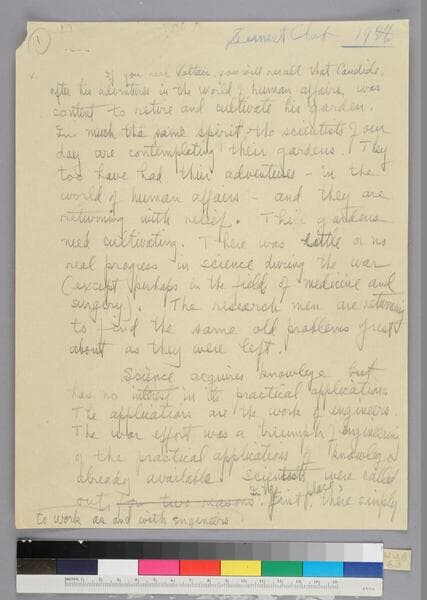 1
Sunset Club 1946
If you read Voltaire, you will recall that Candide,
after his adventures in the world of human affairs, was
content to retire and cultivate his garden.
In much the same spirit the scientists of our
day are contemplating their gardens. They
too have had their adventures - in the
world of human affairs - and they are
returning with relief. Their gardens
need cultivating. There was little or no
real progress in science during the war
(except perhaps in the field of medicine and
surgery). The research men are returning
to find the same old problems just
about as they were left.
Science acquires knowledge but
has no interest in its practical applications
The applications are the work of engineers.
The war effort was a triumph of engineering
of the practical applications of knowledge
already available. Scientists were called
out, for two reasons. In the first place, there simply
to work as and with engineers